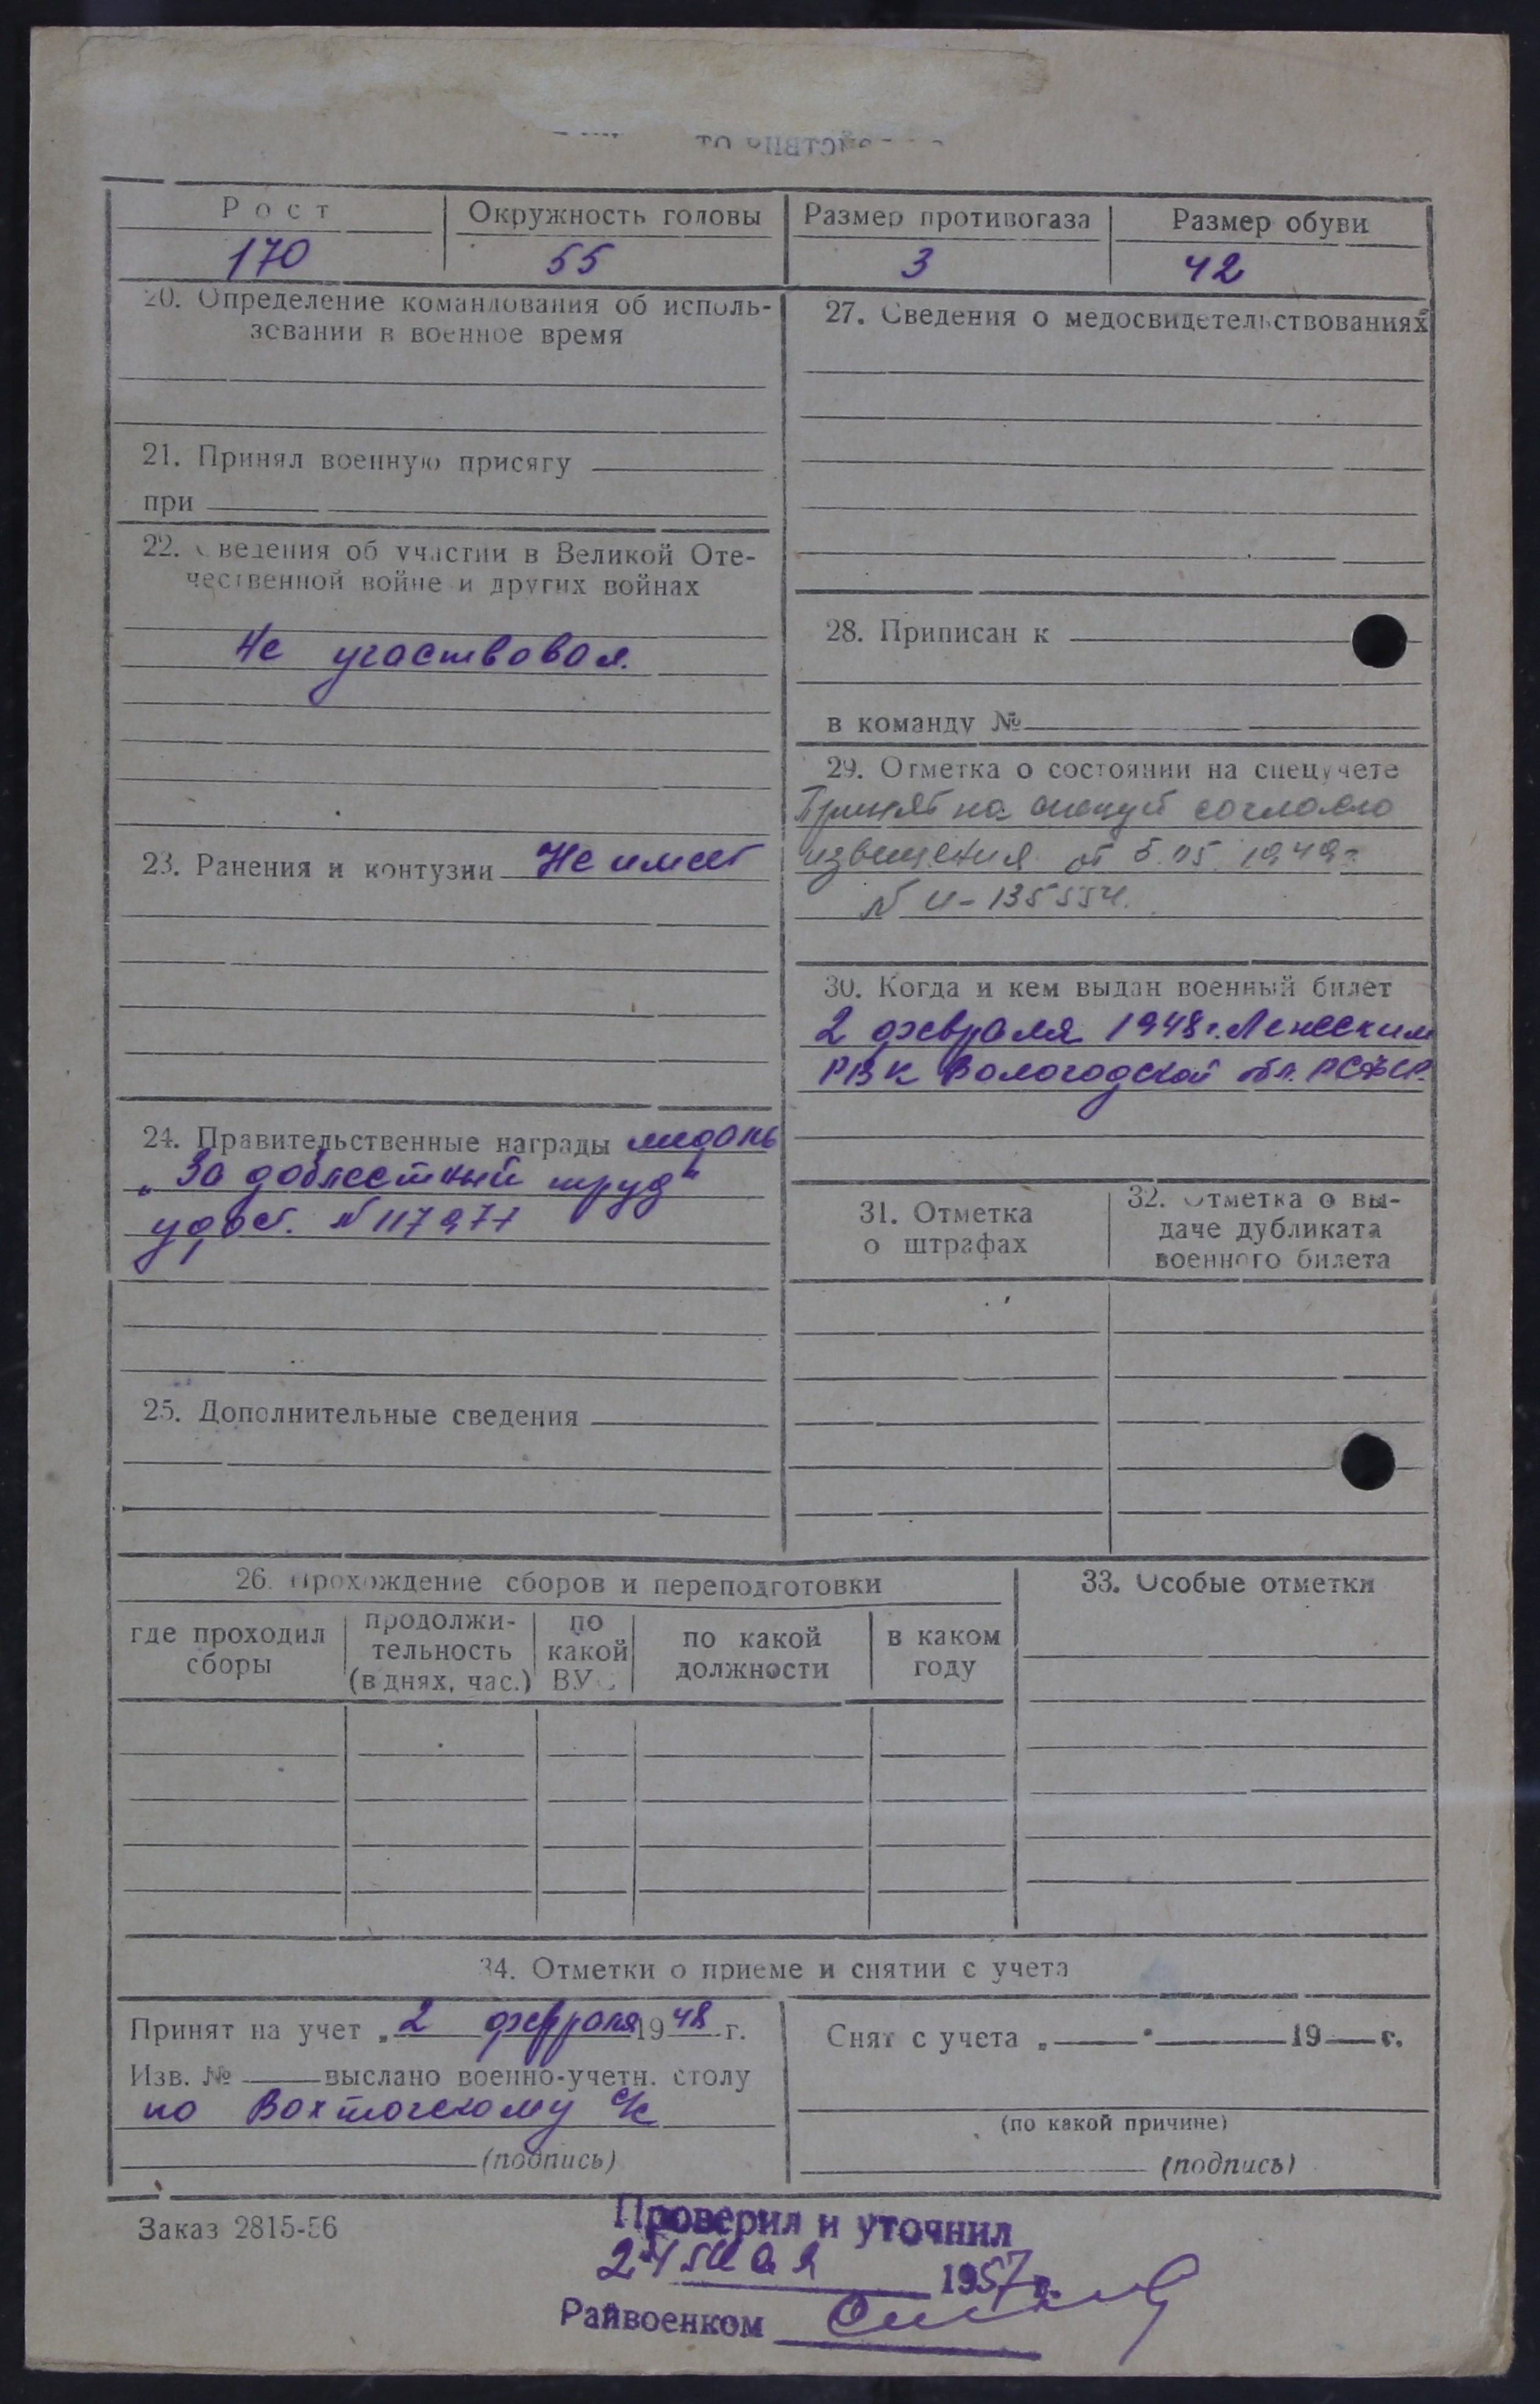 Рост
Окружность головы
Размер противогаза
Размер обуви
170
55
3
42
20. Определение командования об исполь-
зовании в военное время
21. Принял военную присягу
при
22. Сведения об участии в Великой Оте-
чественной войне и других войнах
Не участвовал.
23. Ранения и контузии Не имеет
24. Правительственные награды медаль
„За доблестный труд"
удост. №
25. Дополнительные сведения
27. Сведения о медосвидетельствованиях
28. Приписан к
в команду №
29. Отметка о состоянии на спецучете
Принят на спецуч согласно
извещения от 5.05.1949г
№ и-135554.
30. Когда и кем выдан военный билет
2 февраля 1948г. Ленским
РВК Вологодской обл. РСФСР.
31. Отметка
о штрафах
32. Отметка о вы-
даче дубликата
военного билета
26. Прохождение сборов и переподготовки
где проходил
сборы
продолжи-
тельность
(в днях, час.)
по
какой
ВУС
по какой
должности
в каком
году
33. Особые отметки
34. Отметки о приеме и снятии с учета
Принят на учет „2 февраля 1948 г.
Изв. № выслано военно-учетн. столу
по Вохтогскому с/с
(подпись)
Снят с учета „ " 19 г.
(по какой причине)
(подпись)
Заказ 2815-56
Проверил и уточнил
24 мая 1957 г.
Райвоенком